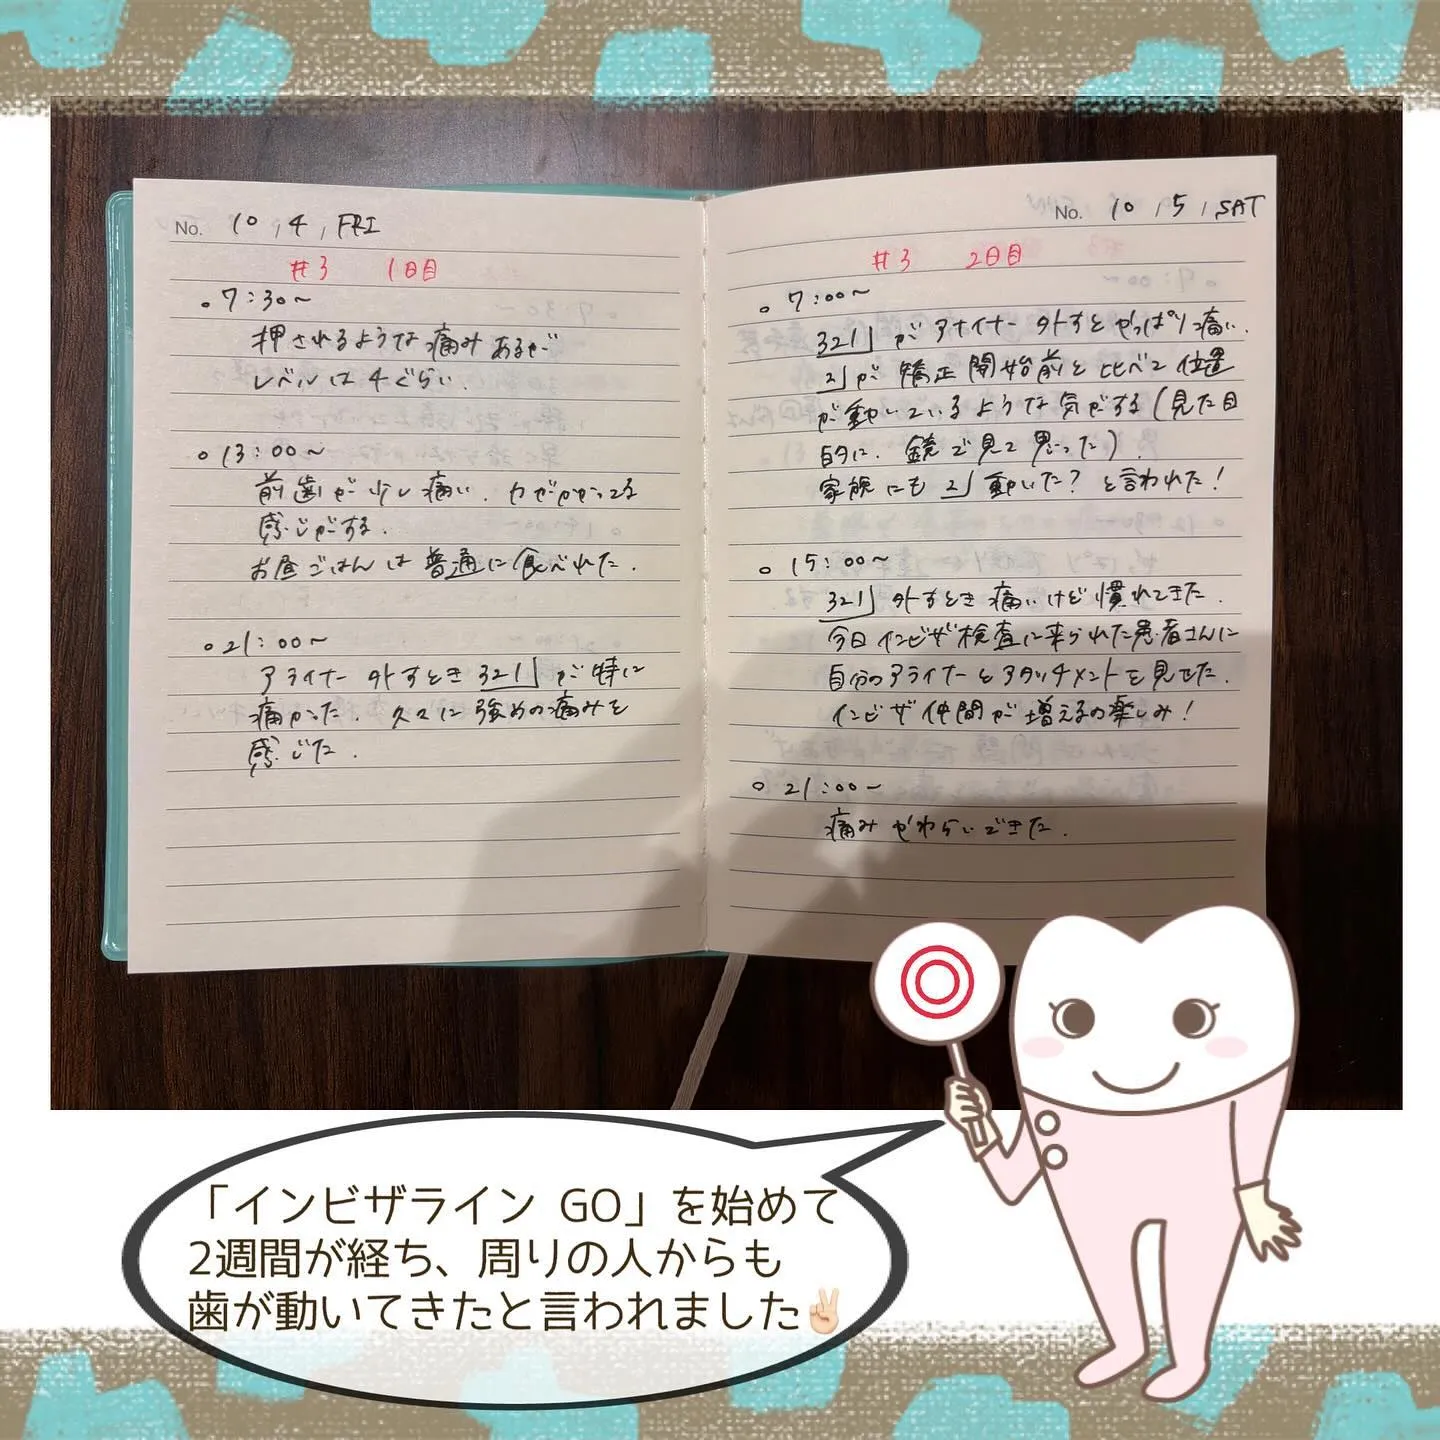 No. 10, 4, FRI
#3 1日目
○7:30〜
押されるような痛みあるが
レベルは4ぐらい.
○13:00〜
前歯が少し痛い. 力がかかってる
感じがする.
お昼ごはんは普通に食べれた.
○21:00〜
アライナー外すとき321」が特に
痛かった. 久々に強めの痛みを
感じた.
No. 10, 5, SAT
#3 2日目
○7:00〜
321」がアライナー外すとやっぱり痛い.
2」が矯正開始前と比べて位置
が動いているような気がする(見た目
的に. 鏡で見て思った).
家族にも2」動いた?と言われた!
○15:00〜
321」外すとき痛いけど慣れてきた.
今日インビザ検査に来られた患者さんに
自分のアライナーとアタッチメントを見せた.
インビザ仲間が増えるの楽しみ!
○21:00〜
痛みやわらいできた.
「インビザライン GO」を始めて
2週間が経ち、周りの人からも
歯が動いてきたと言われました✌🏻